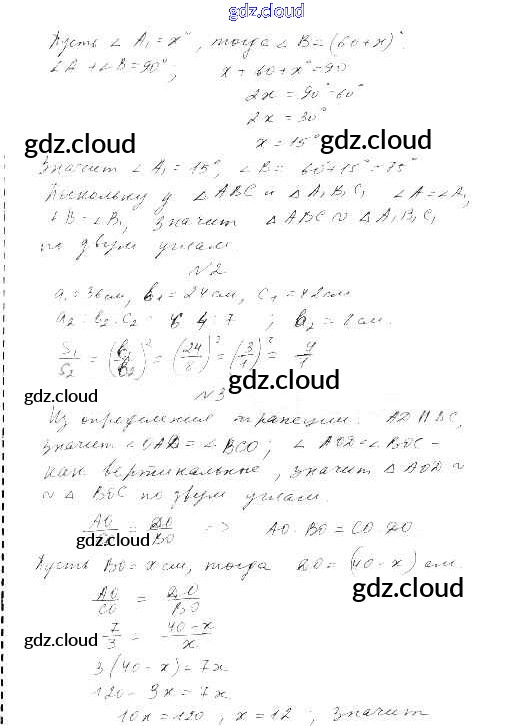 gdz.cloud
Пусть ∠A₁ = x°, тогда ∠B = (60+x)°.
∠A + ∠B = 90°; x + 60 + x° = 90
2x = 90° - 60°
2x = 30°
x = 15°
gdz.cloud gdz.cloud
Значит ∠A₁ = 15°, ∠B = 60°+15° = 75°
Поскольку у △ABC и △A₁B₁C₁ ∠A = ∠A₁,
∠B = ∠B₁, значит △ABC ~ △A₁B₁C₁
по двум углам.
N2
a₁ = 36 см, b₁ = 24 см, c₁ = 42 см
a₂ : b₂ : c₂ = 6 4 : 7 ; b₂ = 8 см.
S₁/S₂ = (b₁/b₂)² = (24/8)² = (3/1)² = 9/1
gdz.cloud
N3
Из определения трапеции: AD ∥ BC,
значит ∠OAD = ∠BCO; ∠AOD = ∠BOC -
как вертикальные, значит △AOD ~
~ △BOC по двум углам.
AO/CO = DO/BO => AO · BO = CO · DO
gdz.cloud
Пусть BO = x см, тогда DO = (40 - x) см.
gdz.cloud
AO/CO = DO/BO
7/3 = (40 - x)/x
gdz.cloud gdz.cloud
3(40 - x) = 7x
120 - 3x = 7x
10x = 120, x = 12; значит